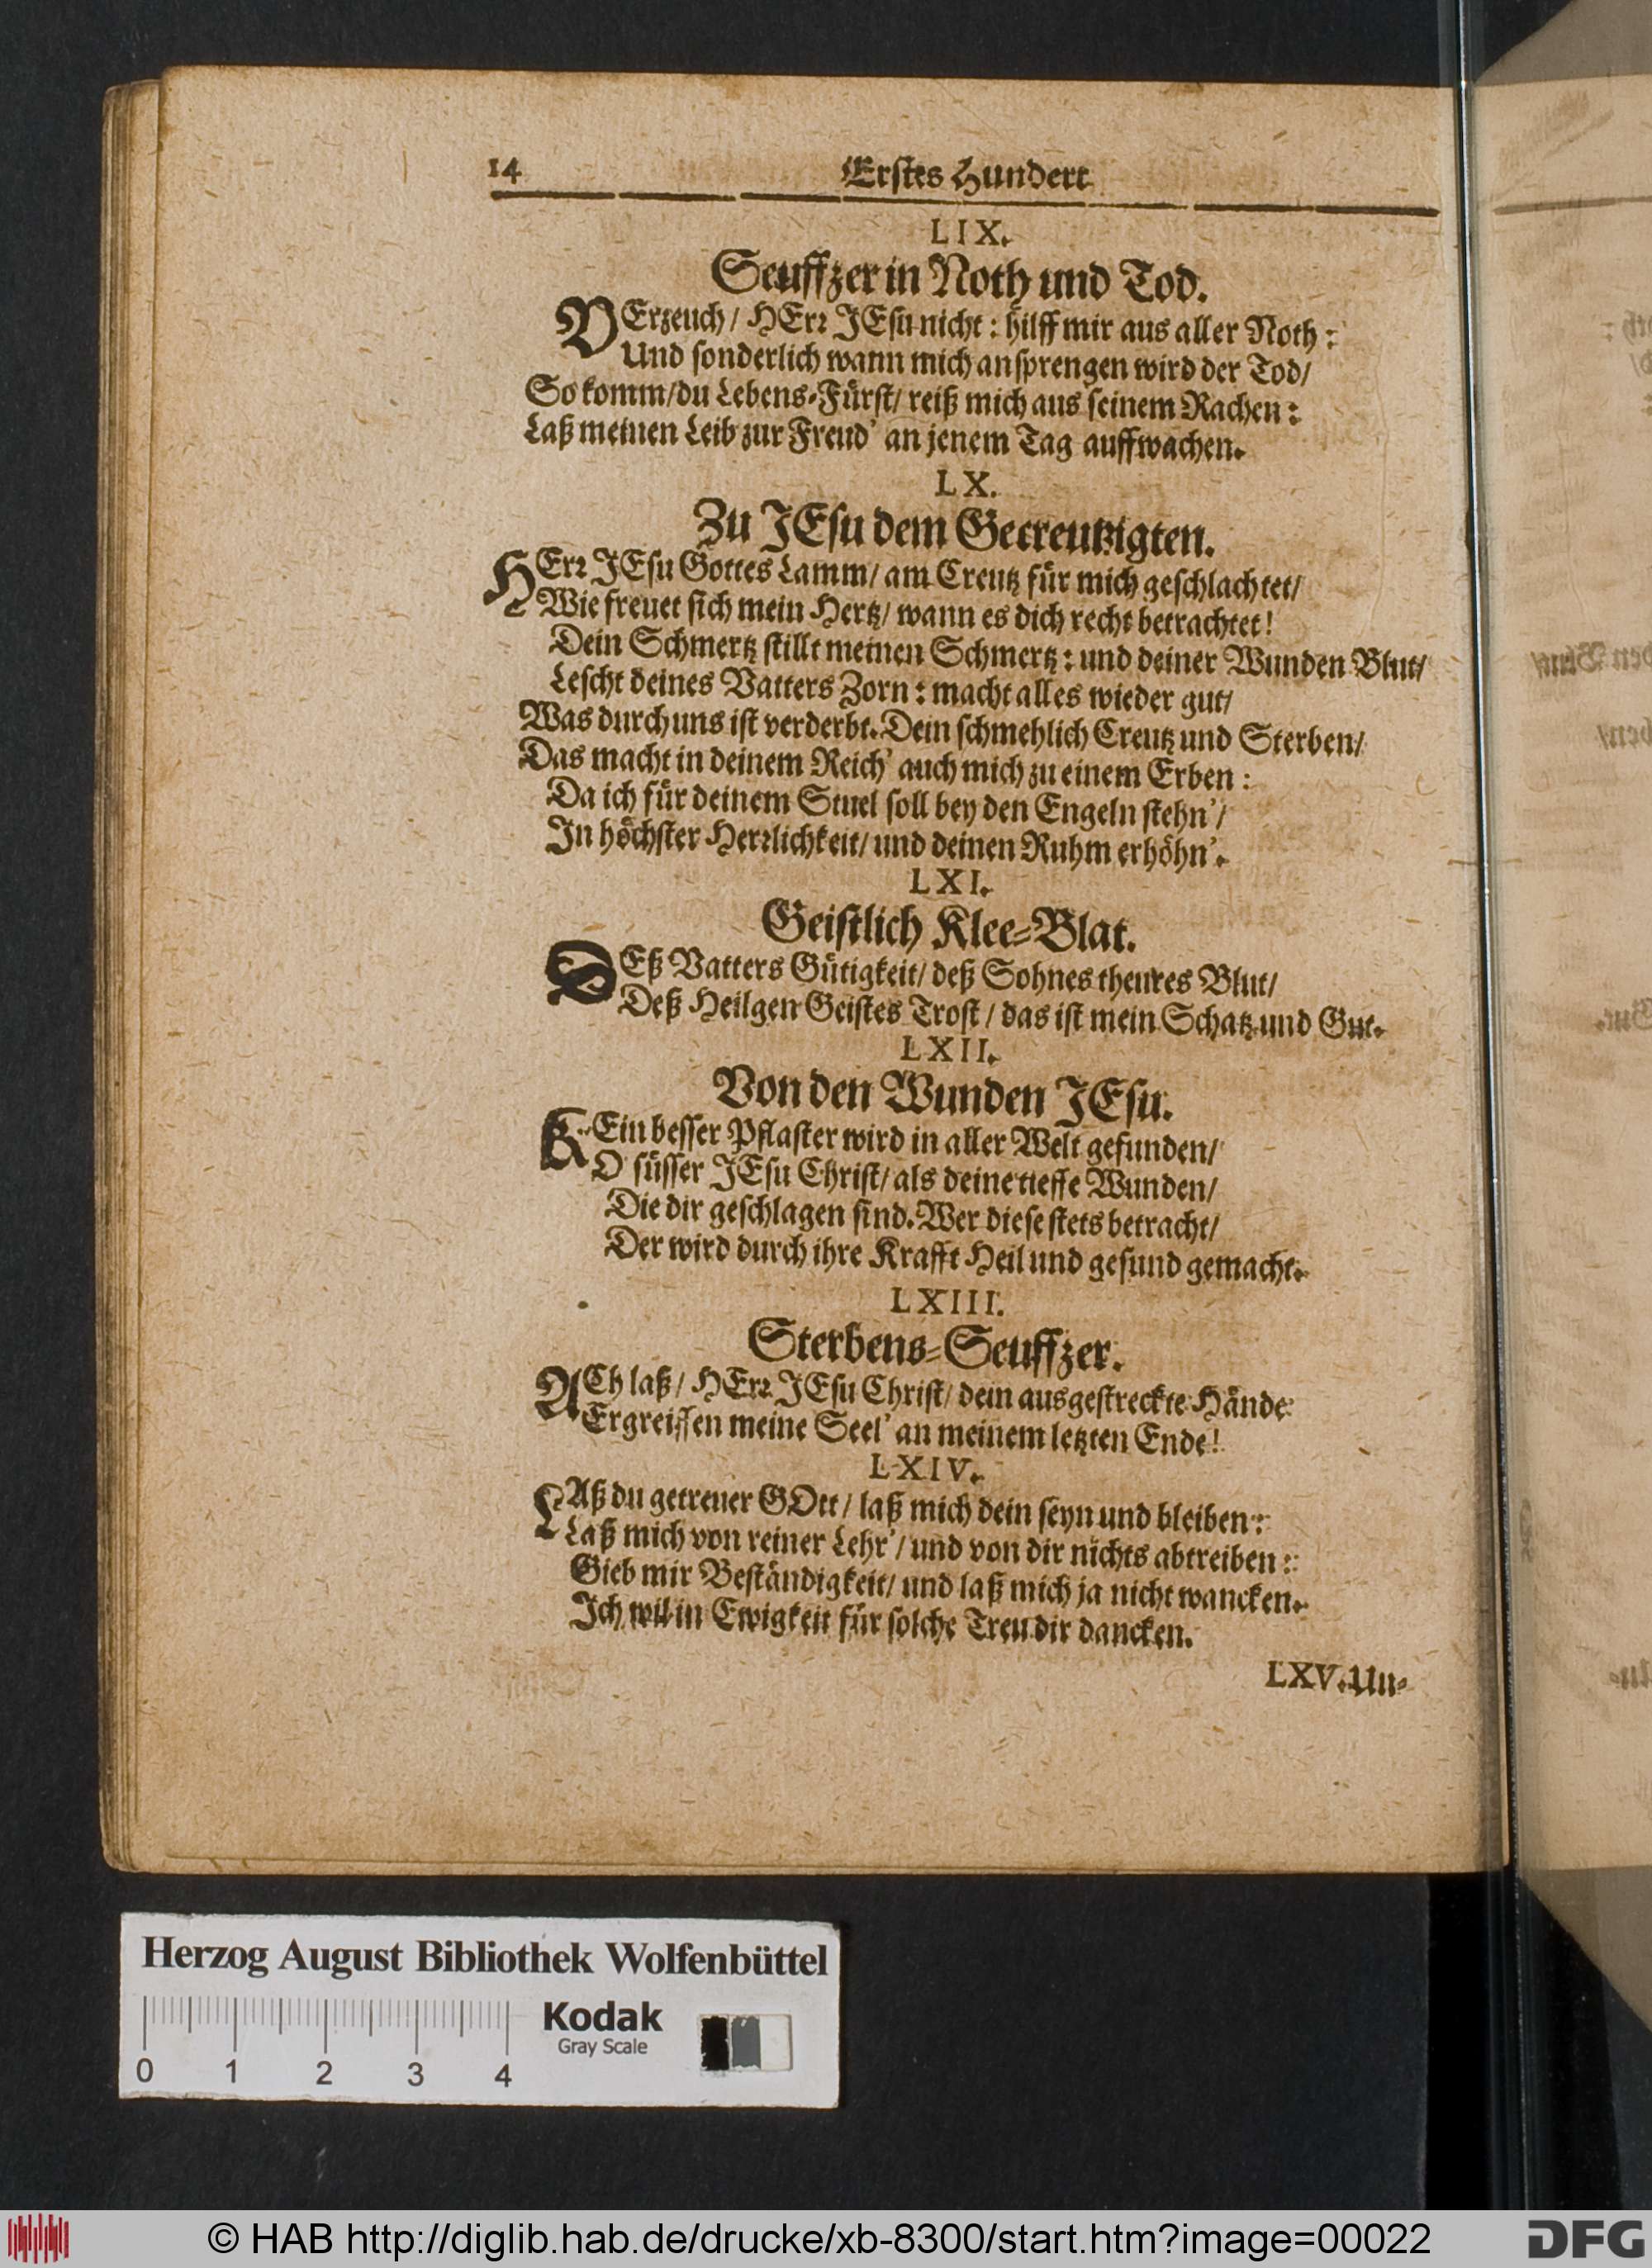 14 Erstes Hundert
LIX.
Seuffzer in Noth und Tod.
VErzeuch / HErr JEsu nicht : hilff mir aus aller Noth :
Und sonderlich wann mich ansprengen wird der Tod /
So komm / du Lebens-Fürst / reiß mich aus seinem Rachen :
Laß meinen Leib zur Freud' an jenem Tag auffwachen.
LX.
Zu JEsu dem Gecreutzigten.
HErr JEsu Gottes Lamm / am Creutz für mich geschlachtet /
Wie freuet sich mein Hertz / wann es dich recht betrachtet !
Dein Schmertz stillt meinen Schmertz : und deiner Wunden Blut /
Lescht deines Vatters Zorn : macht alles wieder gut /
Was durch uns ist verderbt. Dein schmehlich Creutz und Sterben /
Das macht in deinem Reich' auch mich zu einem Erben :
Da ich für deinem Stuel soll bey den Engeln stehn' /
In höchster Herrlichkeit / und deinen Ruhm erhöhn'.
LXI.
Geistlich Klee-Blat.
DEß Vatters Gütigkeit / deß Sohnes theures Blut /
Deß Heilgen Geistes Trost / das ist mein Schatz und Gut.
LXII.
Von den Wunden JEsu.
KEin besser Pflaster wird in aller Welt gefunden /
O süsser JEsu Christ / als deine tieffe Wunden /
Die dir geschlagen sind. Wer diese stets betracht /
Der wird durch ihre Krafft Heil und gesund gemacht.
LXIII.
Sterbens-Seuffzer.
ACh laß / HErr JEsu Christ / dein ausgestreckte Hände
Ergreiffen meine Seel' an meinem letzten Ende !
LXIV.
LAß du getreuer GOtt / laß mich dein seyn und bleiben :
Laß mich von reiner Lehr' / und von dir nichts abtreiben :
Gieb mir Beständigkeit / und laß mich ja nicht wancken.
Ich wil in Ewigkeit für solche Treu dir dancken.
LXV. Un-
Herzog August Bibliothek Wolfenbüttel
Kodak
Gray Scale
0 1 2 3 4
© HAB http://diglib.hab.de/drucke/xb-8300/start.htm?image=00022
DFG